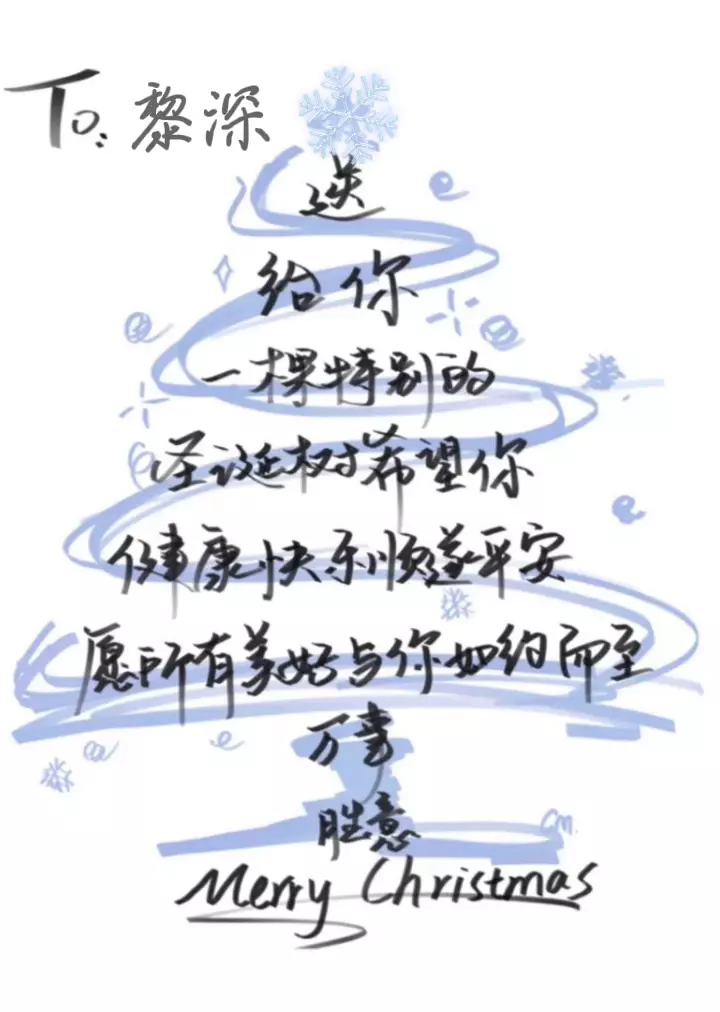 To: 黎深
送
给你
一棵特别的
圣诞树希望你
健康快乐顺遂平安
愿所有美好与你如约而至
万事
胜意
CM.
Merry Christmas